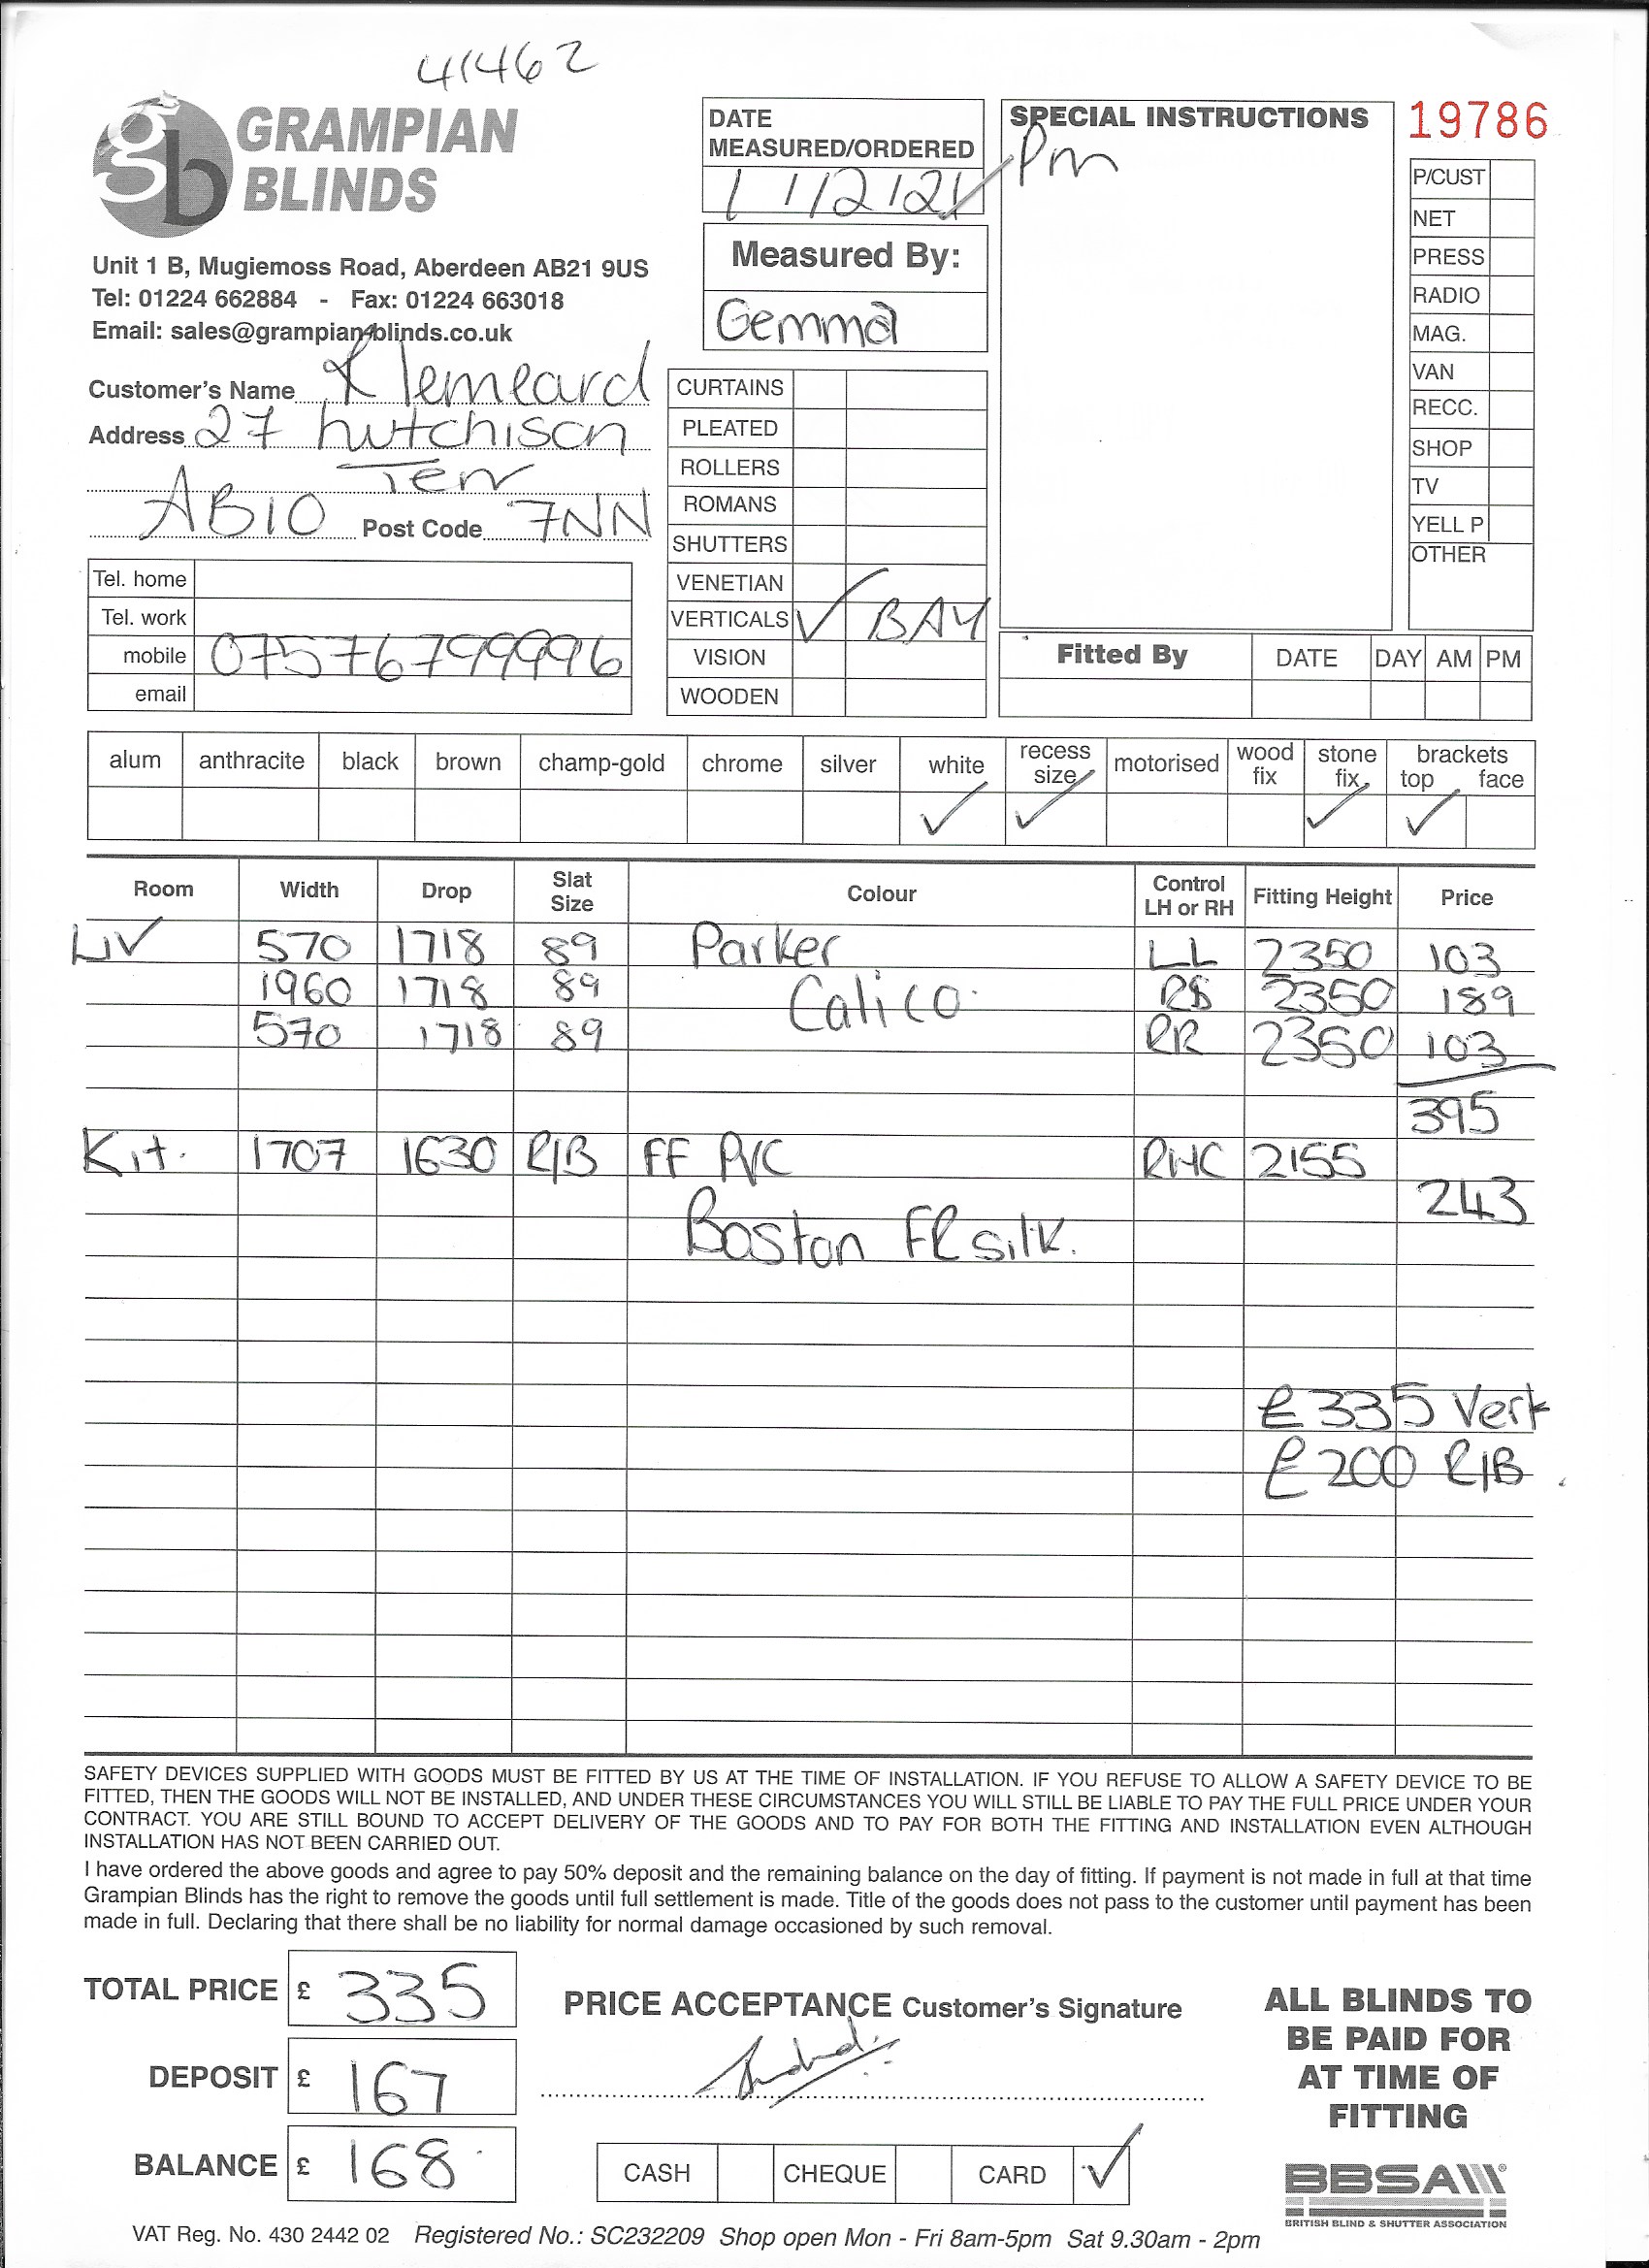 41462
GRAMPIAN
BLINDS
Unit 1 B, Mugiemoss Road, Aberdeen AB21 9US
Tel: 01224 662884 - Fax: 01224 663018
Email: sales@grampianblinds.co.uk
Customer's Name Klemeard
Address 27 hutchison
Terr
AB10 Post Code 7NN
Tel. home
Tel. work
mobile 07576799996
email
DATE
MEASURED/ORDERED
1/12/21
Measured By:
Gemma
CURTAINS
PLEATED
ROLLERS
ROMANS
SHUTTERS
VENETIAN
VERTICALS ✓ BAY
VISION
WOODEN
SPECIAL INSTRUCTIONS
Pm
19786
P/CUST
NET
PRESS
RADIO
MAG.
VAN
RECC.
SHOP
TV
YELL P
OTHER
Fitted By DATE DAY AM PM
alum anthracite black brown champ-gold chrome silver white recess size motorised wood fix stone fix brackets top face
✓ ✓ ✓ ✓
Room Width Drop Slat Size Colour Control LH or RH Fitting Height Price
Liv 570 1718 89 Parker LL 2350 103
1960 1718 89 Calico 2350 189
570 1718 89 RR 2350 103
395
Kit. 1707 1630 R/B FF P/C RHC 2155
243
Boston FR silk.
£335 Vert
£200 R/B
SAFETY DEVICES SUPPLIED WITH GOODS MUST BE FITTED BY US AT THE TIME OF INSTALLATION. IF YOU REFUSE TO ALLOW A SAFETY DEVICE TO BE
FITTED, THEN THE GOODS WILL NOT BE INSTALLED, AND UNDER THESE CIRCUMSTANCES YOU WILL STILL BE LIABLE TO PAY THE FULL PRICE UNDER YOUR
CONTRACT. YOU ARE STILL BOUND TO ACCEPT DELIVERY OF THE GOODS AND TO PAY FOR BOTH THE FITTING AND INSTALLATION EVEN ALTHOUGH
INSTALLATION HAS NOT BEEN CARRIED OUT.
I have ordered the above goods and agree to pay 50% deposit and the remaining balance on the day of fitting. If payment is not made in full at that time
Grampian Blinds has the right to remove the goods until full settlement is made. Title of the goods does not pass to the customer until payment has been
made in full. Declaring that there shall be no liability for normal damage occasioned by such removal.
TOTAL PRICE £ 335
DEPOSIT £ 167
BALANCE £ 168
PRICE ACCEPTANCE Customer's Signature
CASH CHEQUE CARD ✓
ALL BLINDS TO
BE PAID FOR
AT TIME OF
FITTING
BBSA
BRITISH BLIND & SHUTTER ASSOCIATION
VAT Reg. No. 430 2442 02 Registered No.: SC232209 Shop open Mon - Fri 8am-5pm Sat 9.30am - 2pm